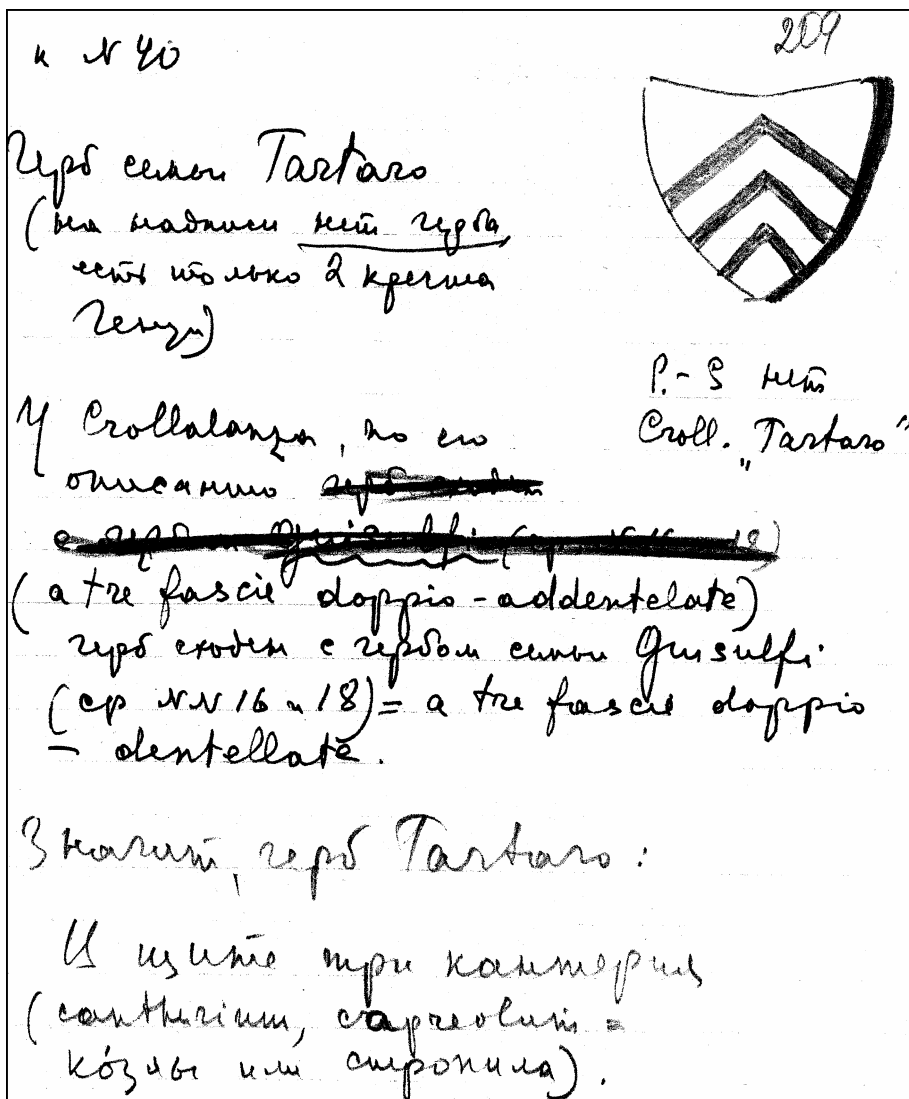 к N 40
209
Герб семьи Tartaro
(на надписи нет герба,
есть только 2 крестa
Генуи)
P.-S нет
Croll. "Tartaro"
У Crollalanza, по его
описанию
(a tre fascie doppio-addentelate)
герб сходен с гербом семьи Guisulfi
(ср NN 16 и 18) = a tre fascie doppio
– dentellate.
Значит, герб Tartaro:
В щите три кантерия
(cantherium, capreolum =
кóзлы или стропила).